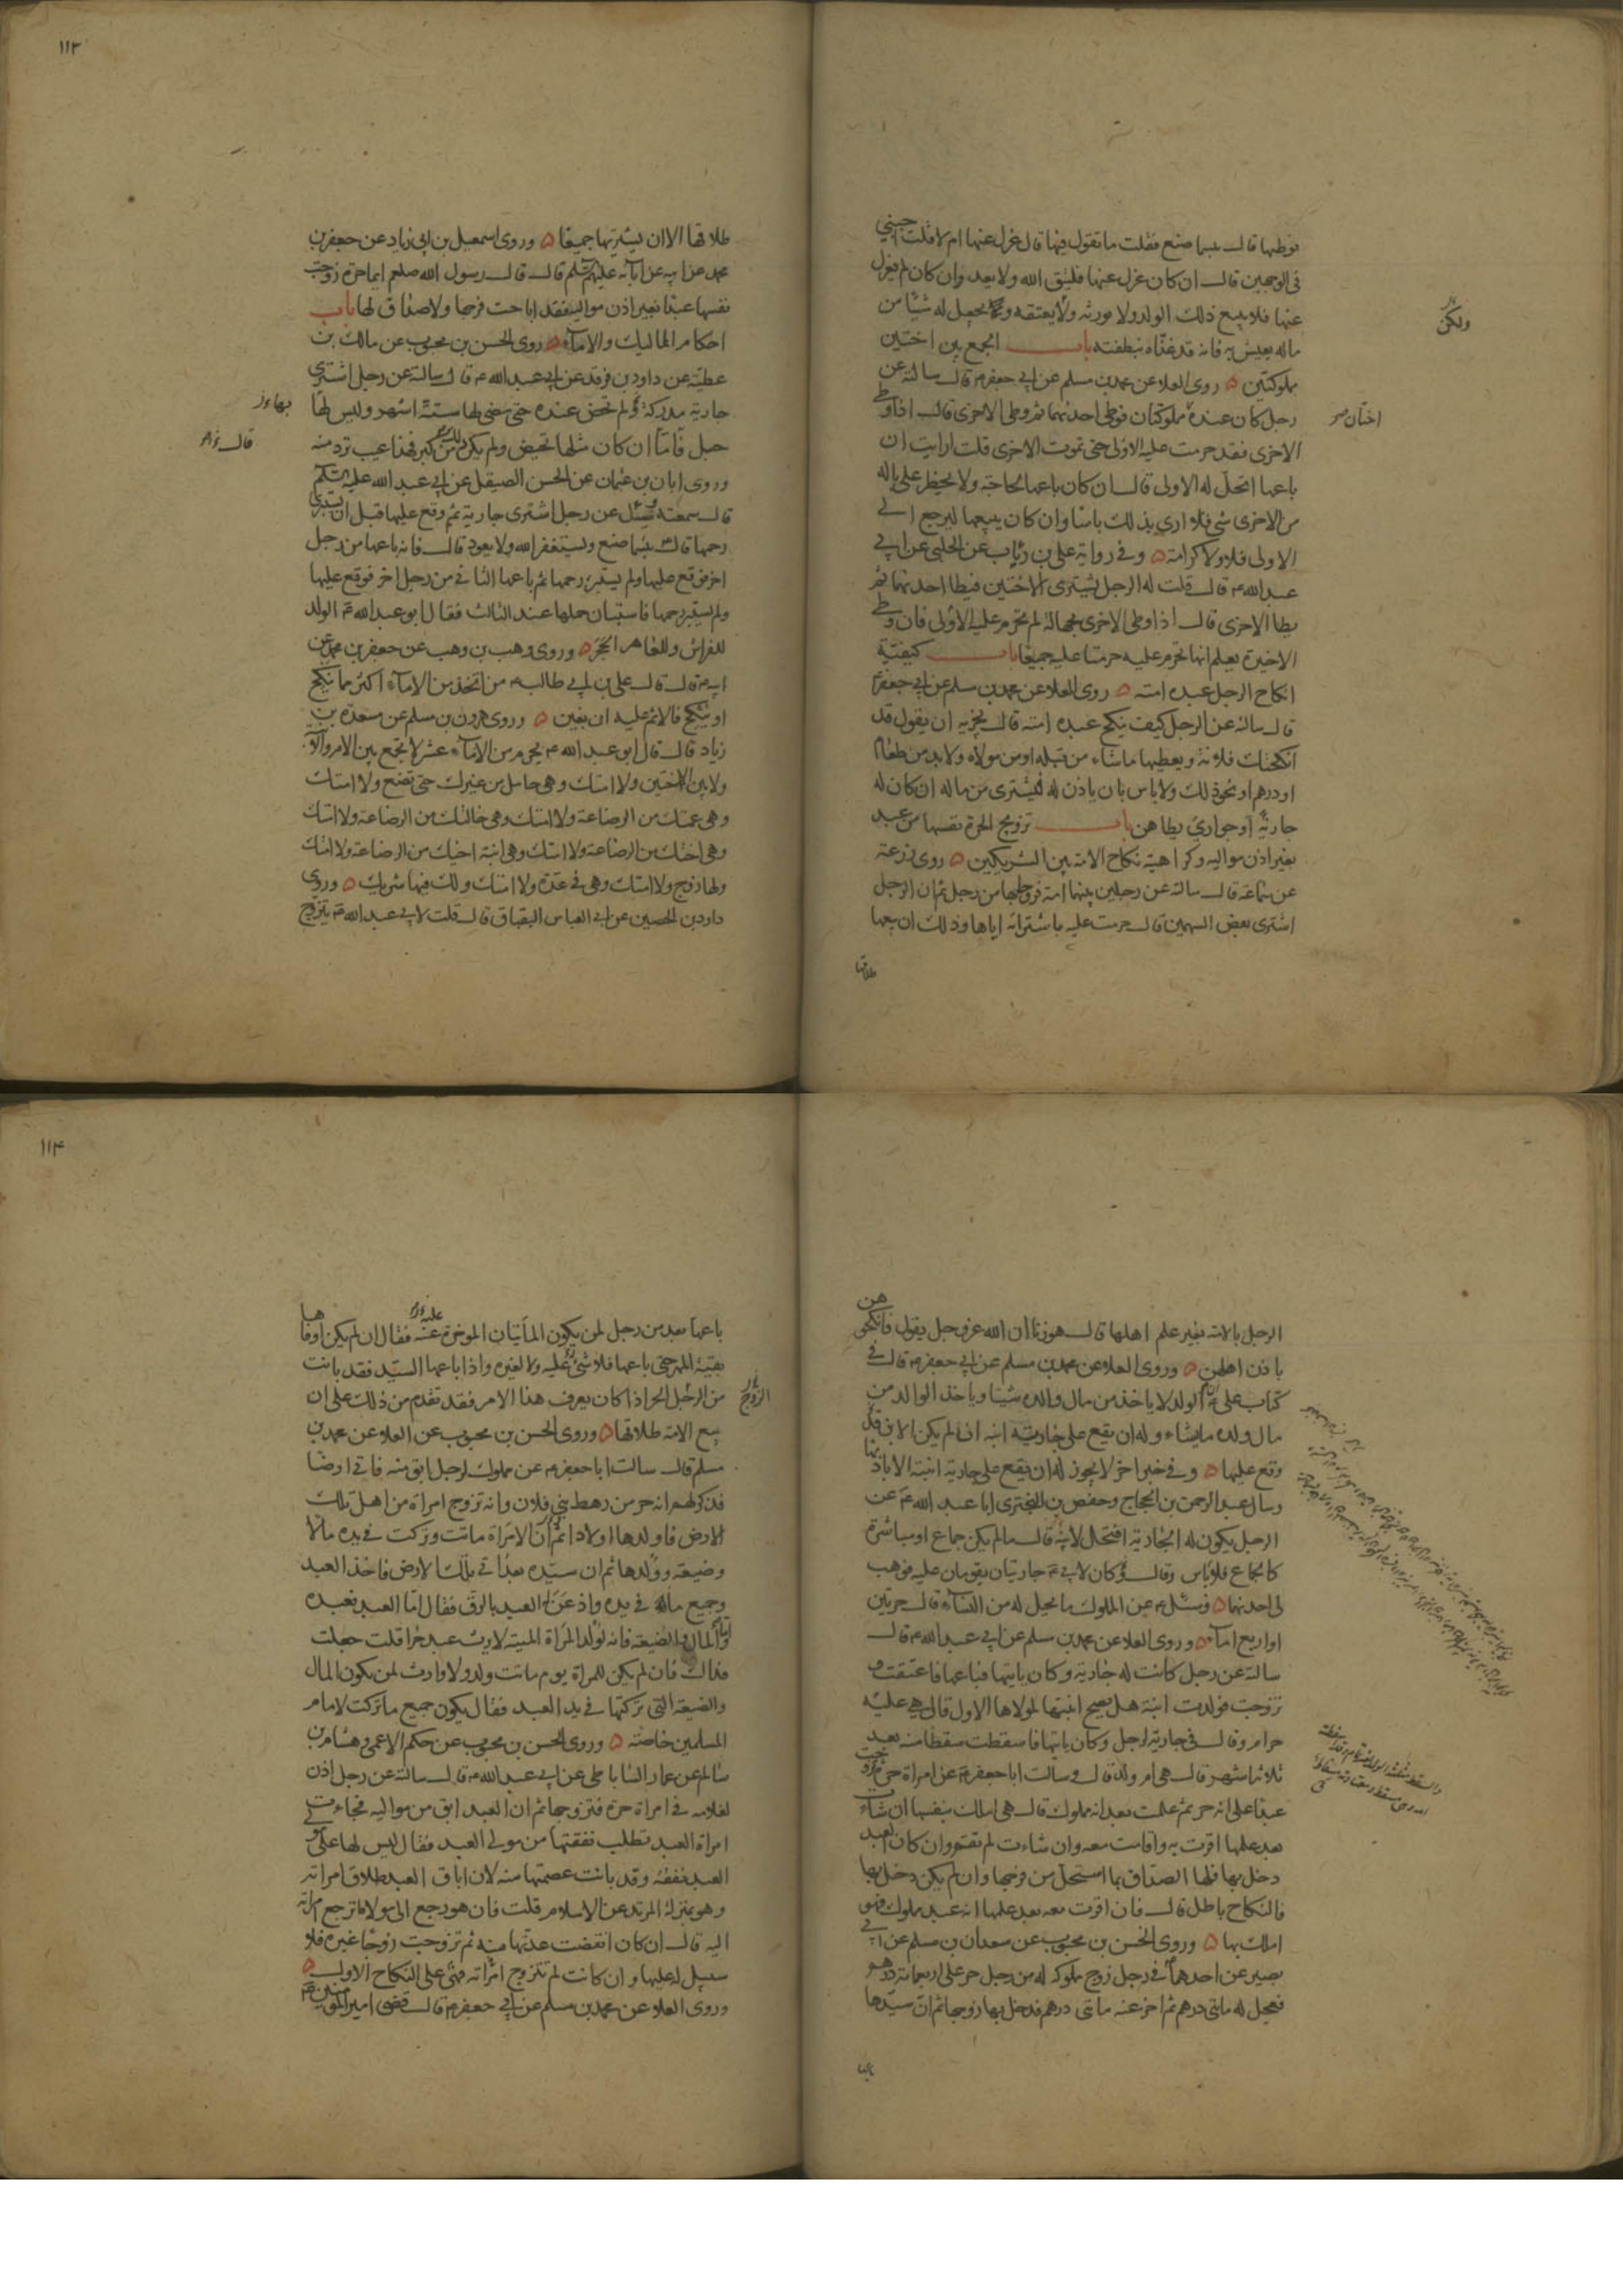 فوطيها قال بئسما صنع فقلت ما تقول فيها قال عزل عنها ام لا قلت اجبني
فى الوجهين قال ان كان عزل عنها فليتق الله ولا يعد وان كان لم يعزل
عنها فلا يبيع ذلك الولد ولا يورثه ولا يعتقه و يجعل له شيئا من
ماله يعيش به فانه قد غذاه بنطفته باب الجمع بين اختين
مملوكتين روى العلا عن محمد بن مسلم عن ابي جعفر ع قال سالته عن
رجل كان عنده مملوكتان فوطى احدهما ثم وطى الاخرى قال اذا وطى
الاخرى فقد حرمت عليه الاولى حتى تموت الاخرى قلت ارايت ان
باعها اتحل له الاولى قال ان كان باعها لحاجة ولا يخطر على باله
من الاخرى شى فلا ارى بذلك باسا وان كان يبيعها ليرجع الى
الاولى فلا ولا كرامة وفى رواية على بن رئاب عن الحلبى عن ابى
عبد الله ع قال قلت له الرجل يشترى الاختين فيطا احدهما ثم
يطا الاخرى قال اذا وطى الاخرى بجهالة لم تحرم عليه الاولى فان وطى
الاخيرة يعلم انها تحرم عليه حرمتا عليه جميعا باب كيفية
انكاح الرجل عبده امته روى العلا عن محمد بن مسلم عن ابى جعفر ع
قال سالته عن الرجل كيف ينكح عبده امته قال يجزيه ان يقول قد
انكحتك فلانة ويعطيها ما شاء من قبله او من مولاه ولا بد من طعام
او درهم او نحو ذلك ولا باس بان ياذن له فيشترى من ماله ان كان له
جارية او جوارى يطاهن باب تزويج الحرة نفسها من عبد
بغير اذن مواليه وكراهية نكاح الامة بين الشريكين روى زرعة
عن سماعة قال سالته عن رجلين بينهما امة فزوجاها من رجل ثم ان الرجل
اشترى بعض السهمين قال حرمت عليه باشترائه اياها وذلك ان بيعها
طلاقها
ولكن
اختان
١١٣
طلاقها الا ان يشتريها جميعا وروى اسمعيل بن ابى زياد عن جعفر بن
محمد عن ابيه عن ابائه عليهم السلم قال قال رسول الله صلعم ايما حرة زوجت
نفسها عبدا بغير اذن مواليه فقد اباحت فرجها ولا صداق لها باب
احكام المماليك والاماء روى الحسن بن محبوب عن مالك بن
عطية عن داود بن فرقد عن ابى عبد الله ع قال سالته عن رجل اشترى
جارية مدركة ولم تحض عنده حتى مضى لها ستة اشهر وليس لها
حبل قال ان كان مثلها تحيض ولم يكن ذلك من كبر فهذا عيب ترد منه
وروى ابان بن عثمان عن الحسن الصيقل عن ابى عبد الله عليه السلم
قال سمعته وسئل عن رجل اشترى جارية ثم وقع عليها قبل ان يستبرى
رحمها قال بئسما صنع ويستغفر الله ولا يعود قال فانه باعها من رجل
اخر فوقع عليها ولم يستبر رحمها ثم باعها الثانى من رجل اخر فوقع عليها
ولم يستبر رحمها فاستبان حملها عند الثالث فقال ابو عبد الله ع الولد
للفراش وللعاهر الحجر وروى وهب بن وهب عن جعفر بن محمد عن
ابيه ع قال قال على بن ابى طالب ع من اتخذ من الاماء اكثر مما ينكح
او ينكح فالاثم عليه ان بغين وروى هرون بن مسلم عن مسعدة بن
زياد قال قال ابو عبد الله ع يحرم من الاماء عشر لا تجمع بين الام والابنة
ولا بين الاختين ولا امتك وهى حامل من غيرك حتى تضع ولا امتك
وهى عمتك من الرضاعة ولا امتك وهى خالتك من الرضاعة ولا امتك
وهى اختك من الرضاعة ولا امتك وهى ابنة اختك من الرضاعة ولا امتك
ولها زوج ولا امتك وهى فى عدة ولا امتك ولك فيها شريك وروى
داود بن الحصين عن ابى العباس البقباق قال قلت لابى عبد الله ع يتزوج
قال
الرجل بالامة بغير علم اهلها قال هو زنا ان الله عز وجل يقول فانكحوهن
باذن اهلهن وروى العلا عن محمد بن مسلم عن ابى جعفر ع قال فى
كتاب على ع الولد لا ياخذ من مال والده شيئا وياخذ الوالد من
مال ولده ما يشاء وله ان يقع على جارية ابنه ان لم يكن الابن قد
وقع عليها وفى خبر اخر لا يجوز له ان يقع على جارية ابنته الا باذنها
وسال عبد الرحمن بن الحجاج وحفص بن البخترى ابا عبد الله ع عن
الرجل يكون له الجارية افتحل لابنه قال ما لم يكن جماع او مباشرة
كالجماع فلا باس وقال وكان لابى ع جاريتان يقومان عليه فوهب
لى احدهما وسئل ع عن المملوك ما يحل له من النساء قال حرتين
او اربع اماء وروى العلا عن محمد بن مسلم عن ابى عبد الله ع قال
سالته عن رجل كانت له جارية وكان ياتيها فباعها فاعتقت و
تزوجت فولدت ابنة هل يصح ابنتها لمولاها الاول قال هى عليه
حرام وقال فى جارية لرجل وكان ياتيها فاسقطت سقطا منه بعد
ثلاثة اشهر قال هى ام ولد قال وسالت ابا جعفر ع عن امراة حرة تزوجت
عبدا على انه حر ثم علمت بعد انه مملوك قال هى املك بنفسها ان شاءت
بعد علمها اقرت به واقامت معه وان شاءت لم تقم وان كان العبد
دخل بها فلها الصداق بما استحل من فرجها وان لم يكن دخل بها
فالنكاح باطل قال فان اقرت معه بعد علمها انه عبد مملوك فهو
املك بها وروى الحسن بن محبوب عن سعدان بن مسلم عن ابى
بصير عن احدهما فى رجل زوج مملوكة له من رجل حر على اربعمائة درهم
فعجل له مائتى درهم ثم اخر عنه مائتى درهم فدخل بها زوجها ثم ان سيدها
باعها
١١٤
باعها بعد من رجل لمن يكون المائتان الموخرة عنه فقال ان لم يكن اوفاها
بقية المهر حتى باعها فلا شى عليه ولا لغيره واذا باعها السيد فقد بانت
من الرجل الحر اذا كان يعرف هذا الامر فقد تقدم من ذلك على ان
بيع الامة طلاقها وروى الحسن بن محبوب عن العلا عن محمد بن
مسلم قال سالت ابا جعفر ع عن مملوك لرجل ابق منه فاتى ارضا
فذكر لهم انه حر من رهط بنى فلان وانه تزوج امراة من اهل تلك
الارض فاولدها اولادا ثم ان الامراة ماتت وتركت فى يده مالا
وضيعة وولدها ثم ان سيده بعد اتى تلك الارض فاخذ العبد
وجميع ماله فى يده واذعن له العبد بالرق فقال اما العبد فعبده
واما المال والضيعة فانه لولد المراة الميتة لا يرث عبد حرا قلت جعلت
فداك فان لم يكن للمراة يوم ماتت ولد ولا وارث لمن يكون المال
والضيعة التى تركتها فى يد العبد فقال يكون جميع ما تركت لامام
المسلمين خاصة وروى الحسن بن محبوب عن حكم الاعمى وهشام بن
سالم عن عمار الساباطى عن ابى عبد الله ع قال سالته عن رجل اذن
لغلامه فى امراة حرة فتزوجها ثم ان العبد ابق من مواليه فجاءت
امراة العبد تطلب نفقتها من مولى العبد فقال ليس لها على مولى
العبد نفقة وقد بانت عصمتها منه لان اباق العبد طلاق امراته
وهو بمنزلة المرتد عن الاسلام قلت فان هو رجع الى مولاه ترجع امراته
اليه قال ان كان انقضت عدتها منه ثم تزوجت زوجا غيره فلا
سبيل له عليها وان كانت لم تتزوج امراته فهى على النكاح الاول
وروى العلا عن محمد بن مسلم عن ابى جعفر ع قال قضى امير المومنين ع
الزوج